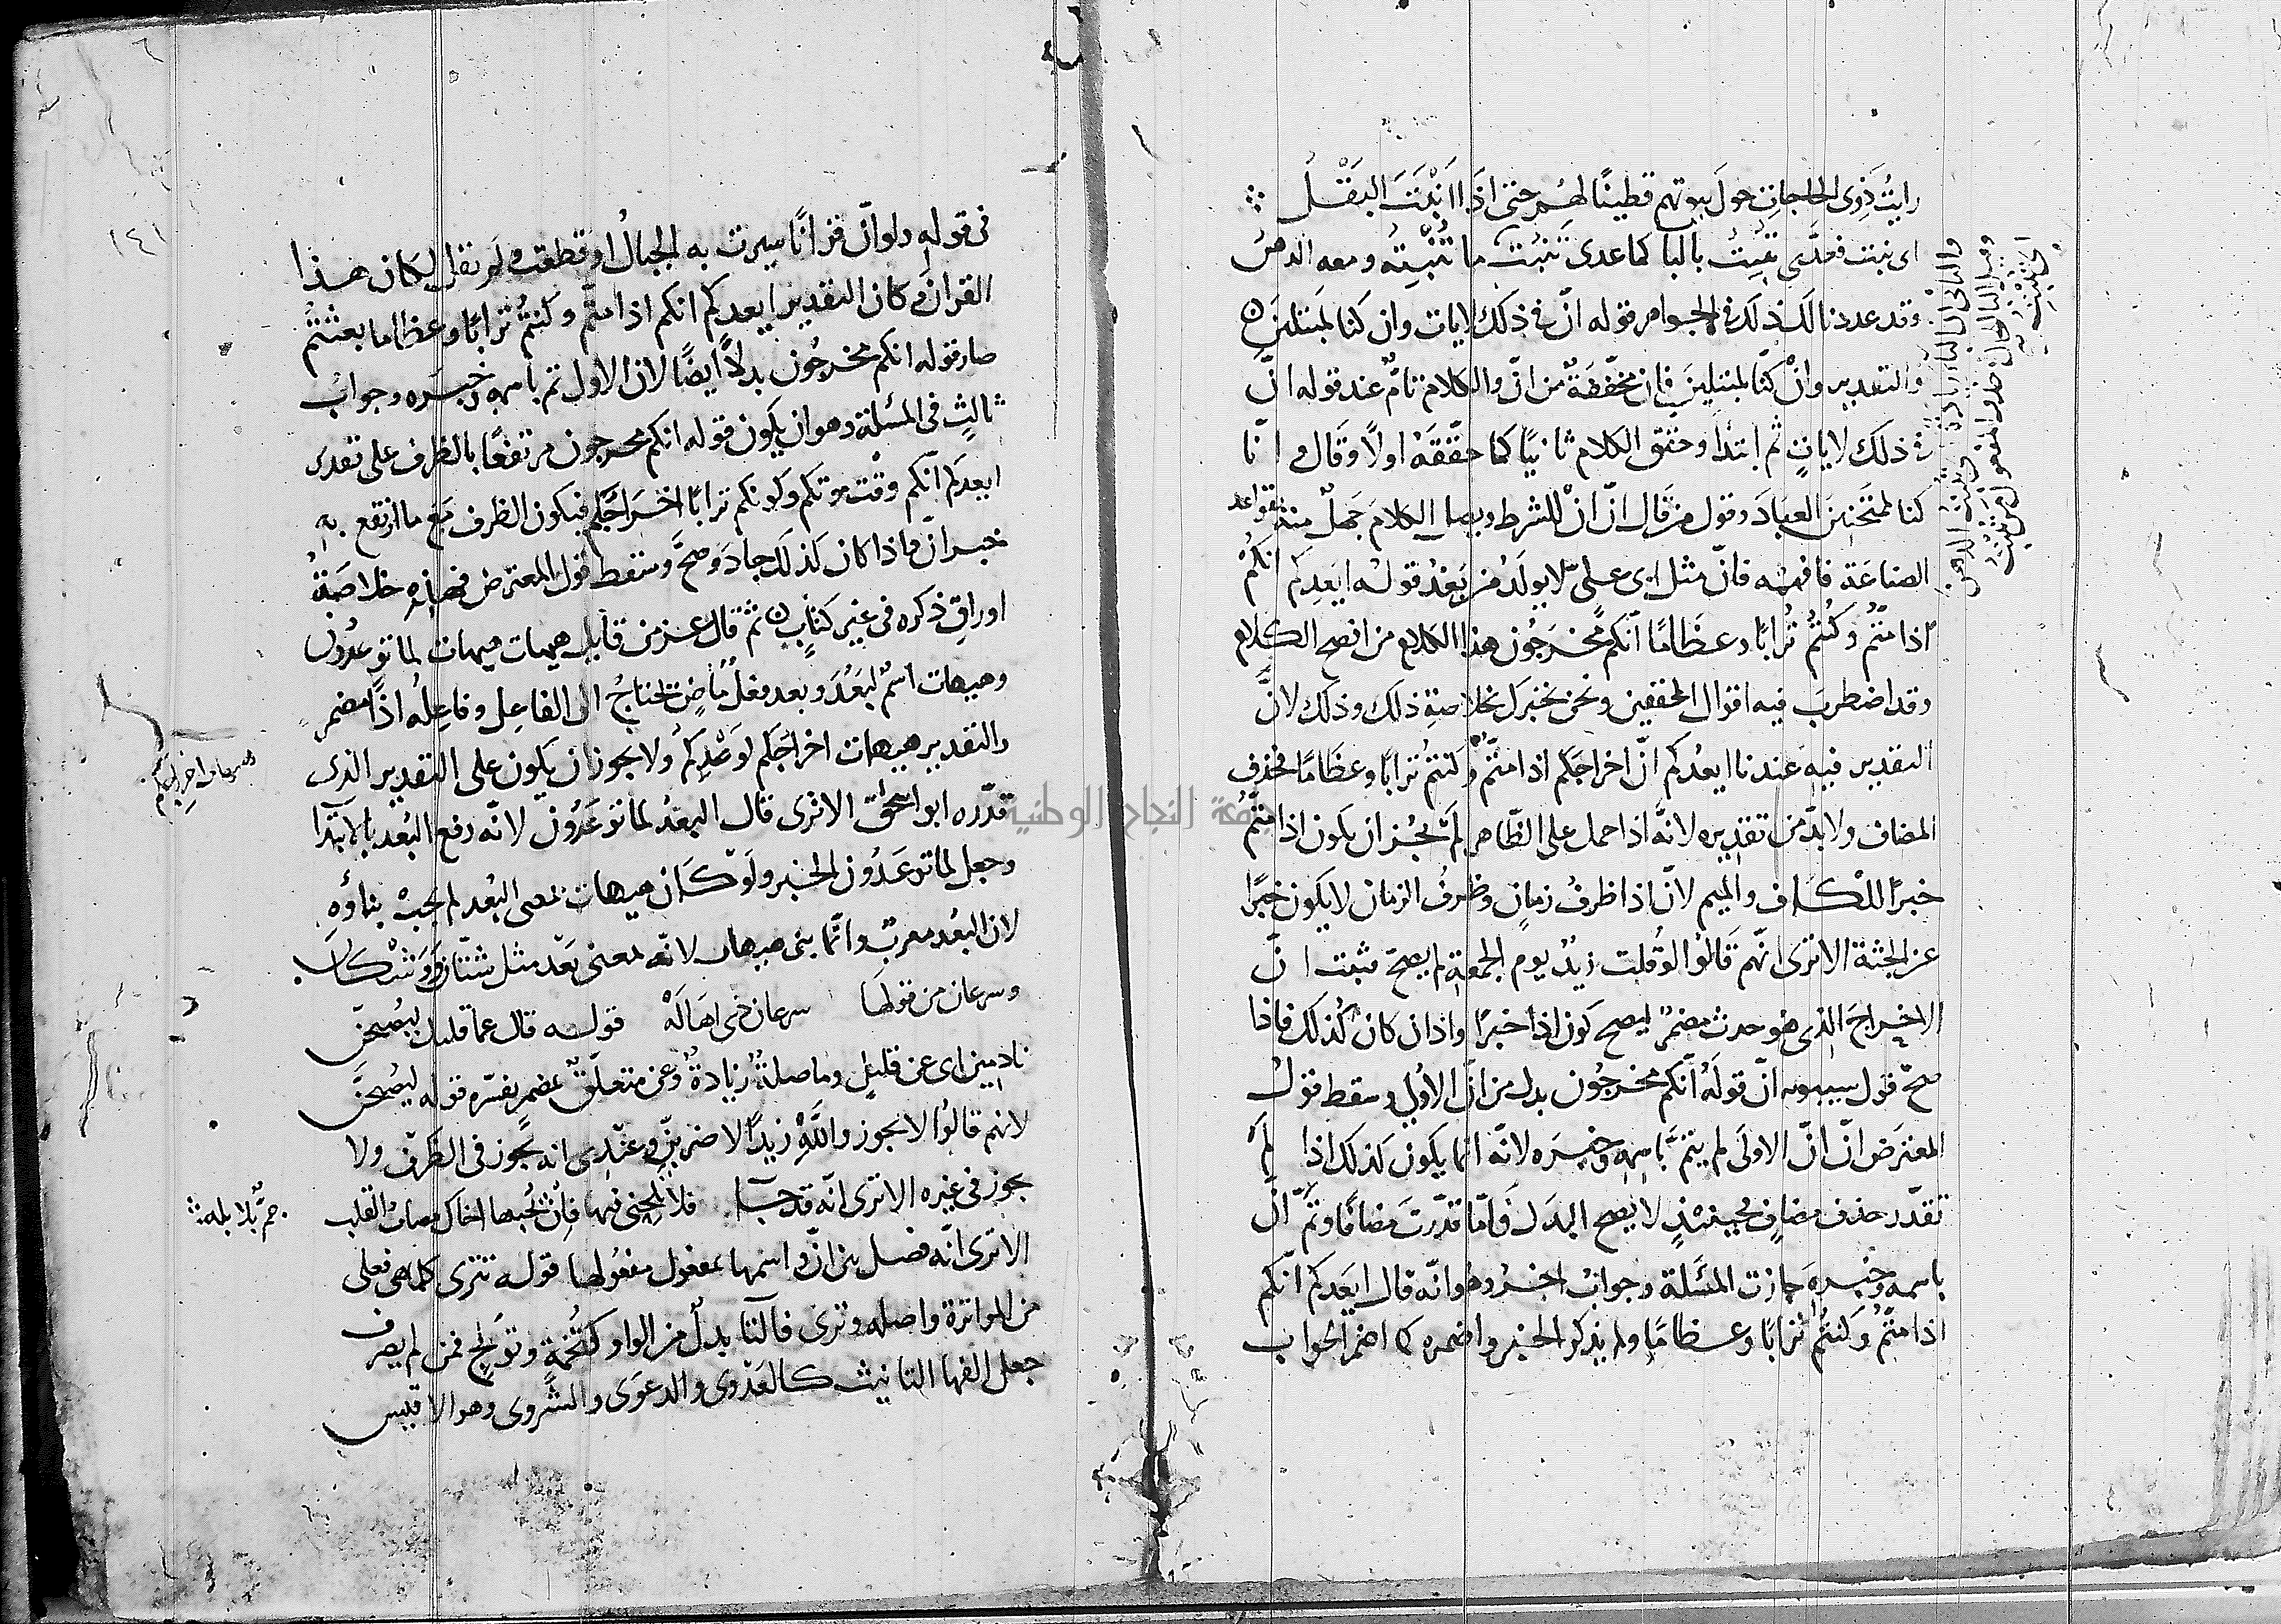 رايتُ ذَوِى الحاجاتِ حولَ بيوتهم قطينًا لهُم حتى اذَا اَنْبَتَ البَقْلُ
اى نبت فعدَّى تنبِتُ بالبا كما عدى تنبُت ما تُنْبِتُه ومعه الدهنُ
وقد عددنا لك ذلك فى الجواهر قوله انّ فى ذلك لايات وان كنا لمبتلين
والتقدير وانْ كنّا لمبتلينَ فإن مخفّفةٌ من انّ والكلام تامٌّ عند قوله انّ
فى ذلك لاياتٍ ثم ابتدأ وحقق الكلام ثانيًا كما حقّقهُ اولًا وقال انّا
كنا لممتحنينَ العبادَ وقول من قال انّ انْ للشرط الكلام جهلٌ منه بقواعد
الصناعة فافهمه فانّ مثل ابى علىّ لا يولَدُ من بَعْدُ قوله ايَعِدكم انكُمْ
اذا متُّم وكنتُم تُرابًا وعظامًا انّكم مُخرَجُون هذا الكلام من افصح الكلام
وقد اضطربَ فيه اقوال المحققين ونحن نخبرك بخلاصة ذلك وذلك لانَّ
التقدير فيه عندنا ايعدُكم انّ اخراجَكم اذا متُّمْ وكنتمْ تُرابًا وعظامًا فحذف
المضاف ولا بدّ من تقديره لانّه اذا حمل على الظاهر لم يَجُز ان يكون اذا متُّم
خبرًا للكاف والميم لانّ اذا ظرفُ زمانٍ وظرفُ الزمان لا يكون خبرًا
عن الجثة الا ترى انّهم قالُوا لو قُلت زيدٌ يوم الجمعة لم يصحّ فثبت انّ
الاخراجَ الذى هو حدث مضمرٌ ليصح كون اذا خبرًا واذا ان كان كذلك فاذا
صحّ قول سيبويه انّ قولَهُ انّكم مخرجُون بدل من انّ الأولى وسقط قول
المعترض انّ انّ الاولَى لم يتمّ باسمِه وخبره لانّه انّما يكون كذلك اذا لم
تقدّر حذف مضافٍ فحينئذٍ لا يصح البدل فامّا قدّرتَ مضافًا وتمّ انّ
باسمه وخبره جازت المسئلة وجوابٌ اخرُ وهُو انّه قال ايعدكُم انّكم
اذا متُّم وكنتُم تُرابًا وعظامًا ولم يذكر الخبر واضمره كما اضمر الجواب
والثانى ان الباء زائدة
فى قوله ولو انّ قرانًا سيرت به الجبالُ او قطعت ولم يقل لكان هذا
القران وكان التقدير ايعدكم انكم اذا متم وكنتُم ترابًا وعظاما بعثتم
صار قوله انكم مخرجُون بدلًا ايضًا لان الاول تم باسمه وخبره وجوابٌ
ثالثٌ فى المسئلة وهو ان يكون قوله انكم مخرجون مرتفعًا بالظرف على تقدير
ايعدكم انّكم وقْت موتكم وكونكم ترابًا اخراجُكم فيكون الظرف مع ما ارتفع به
خبر انّ واذا كان كذلك جاد وصحّ وسقط قول المعترض فهذه خلاصَةُ
اوراقٍ ذكره فى غير كتابٍ ثم قال عز من قايل هيهات هيهات لما توعدُون
وهيهات اسمٌ لبَعُدَ وبعد فعلٌ ماضٍ يحتاجُ الى الفاعِل وفاعِلُه اذًا مضمر
والتقدير هيهات اخراجكم لوعدِكُم ولا يجوز ان يكون على التقدير الذى
قدّره ابو اسحٰق الا ترى قال البعْدُ لما توعَدُون لانّه رفع البُعد بالابتدآ
وجعل لما توعَدُون الخبر ولو كان هيهات بمعنى البُعد لم يجبْ بناؤه
لان البُعد معربٌ وانّما بنى هيهات لانّه بمعنى بَعُد مثل شتّان ووشكان
وسرعان من قولهَا سرعان ذى اهالَهْ قوله قال عما قليل ليُصبحُنّ
نادمين اى عن قليلٍ وما صلةٌ زيادةٌ وعن متعلّقٌ بمضمر يفسّره قوله ليصبحُنّ
لانهم قالُوا لا يجوز واللهِ زيدًا لاضربنّ وعندى انه يجُوز فى الظرف ولا
يجوز فى غيره الا ترى انّه قد جآ فلا تلحنى فيها فانّ بحُبها اخاك مصابُ القلب
جمٌّ بلابله
الا ترى انّه فصل بين انّ واسمها بمعمول مفعُولها قوله تترى كلما هى فعلى
من المواترة واصله وترى فالتا بدلٌ من الواو كتُخمةٍ وتولجٍ فمن لم يصرف
جعل الفها التانيث كالعَدْوى والدعوَى والشروى وهو الاقيس